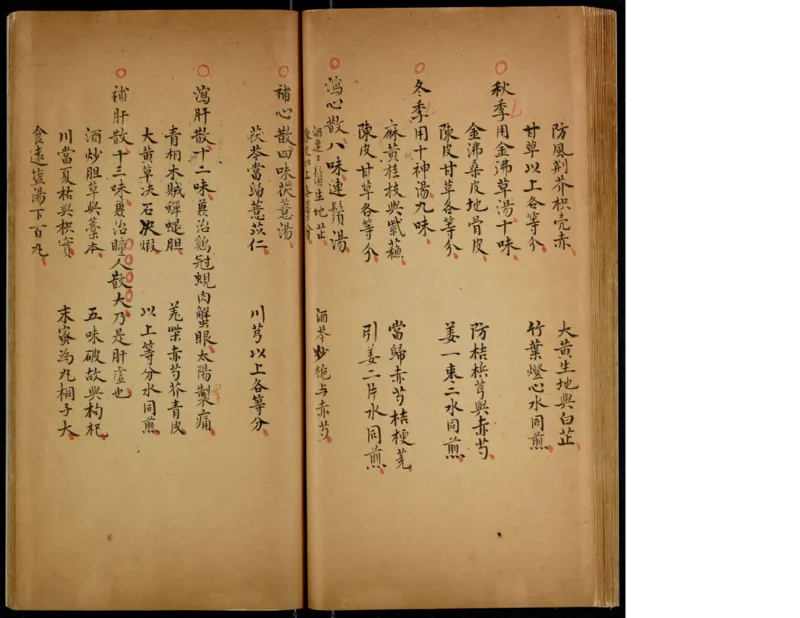 防風荆芥枳壳赤 大黄生地與白芷
甘草以上各等分 竹葉燈心水同煎
秋季用金沸草湯十味
金沸桑皮地骨皮 防桔枳芎與赤芍
陳皮甘草各等分 姜一枣二水同煎
冬季用十神湯九味
麻黄桂枝與紫蘓 當歸赤芍桔梗羌
陳皮甘草各等分 引姜二片水同煎
瀉心散八味連鬚湯
酒連連鬚生地芷 酒芩炒梔与赤芍
以上各等分
補心散四味茯薏湯
茯苓當歸薏苡仁 川芎以上各等分
瀉肝散十二味兼治鷄冠蜆肉蟹眼太陽製痛
青相木賊蟬蜕胆 羌柴赤芍芥青皮
大黄草决石 以上等分水同煎
補肝散十三味兼治瞳人散大乃是肝虚也
酒炒胆草與藁本 五味破故與枸杞
川當夏枯與枳實 末蜜為丸桐子大
食遠鹽湯下百丸